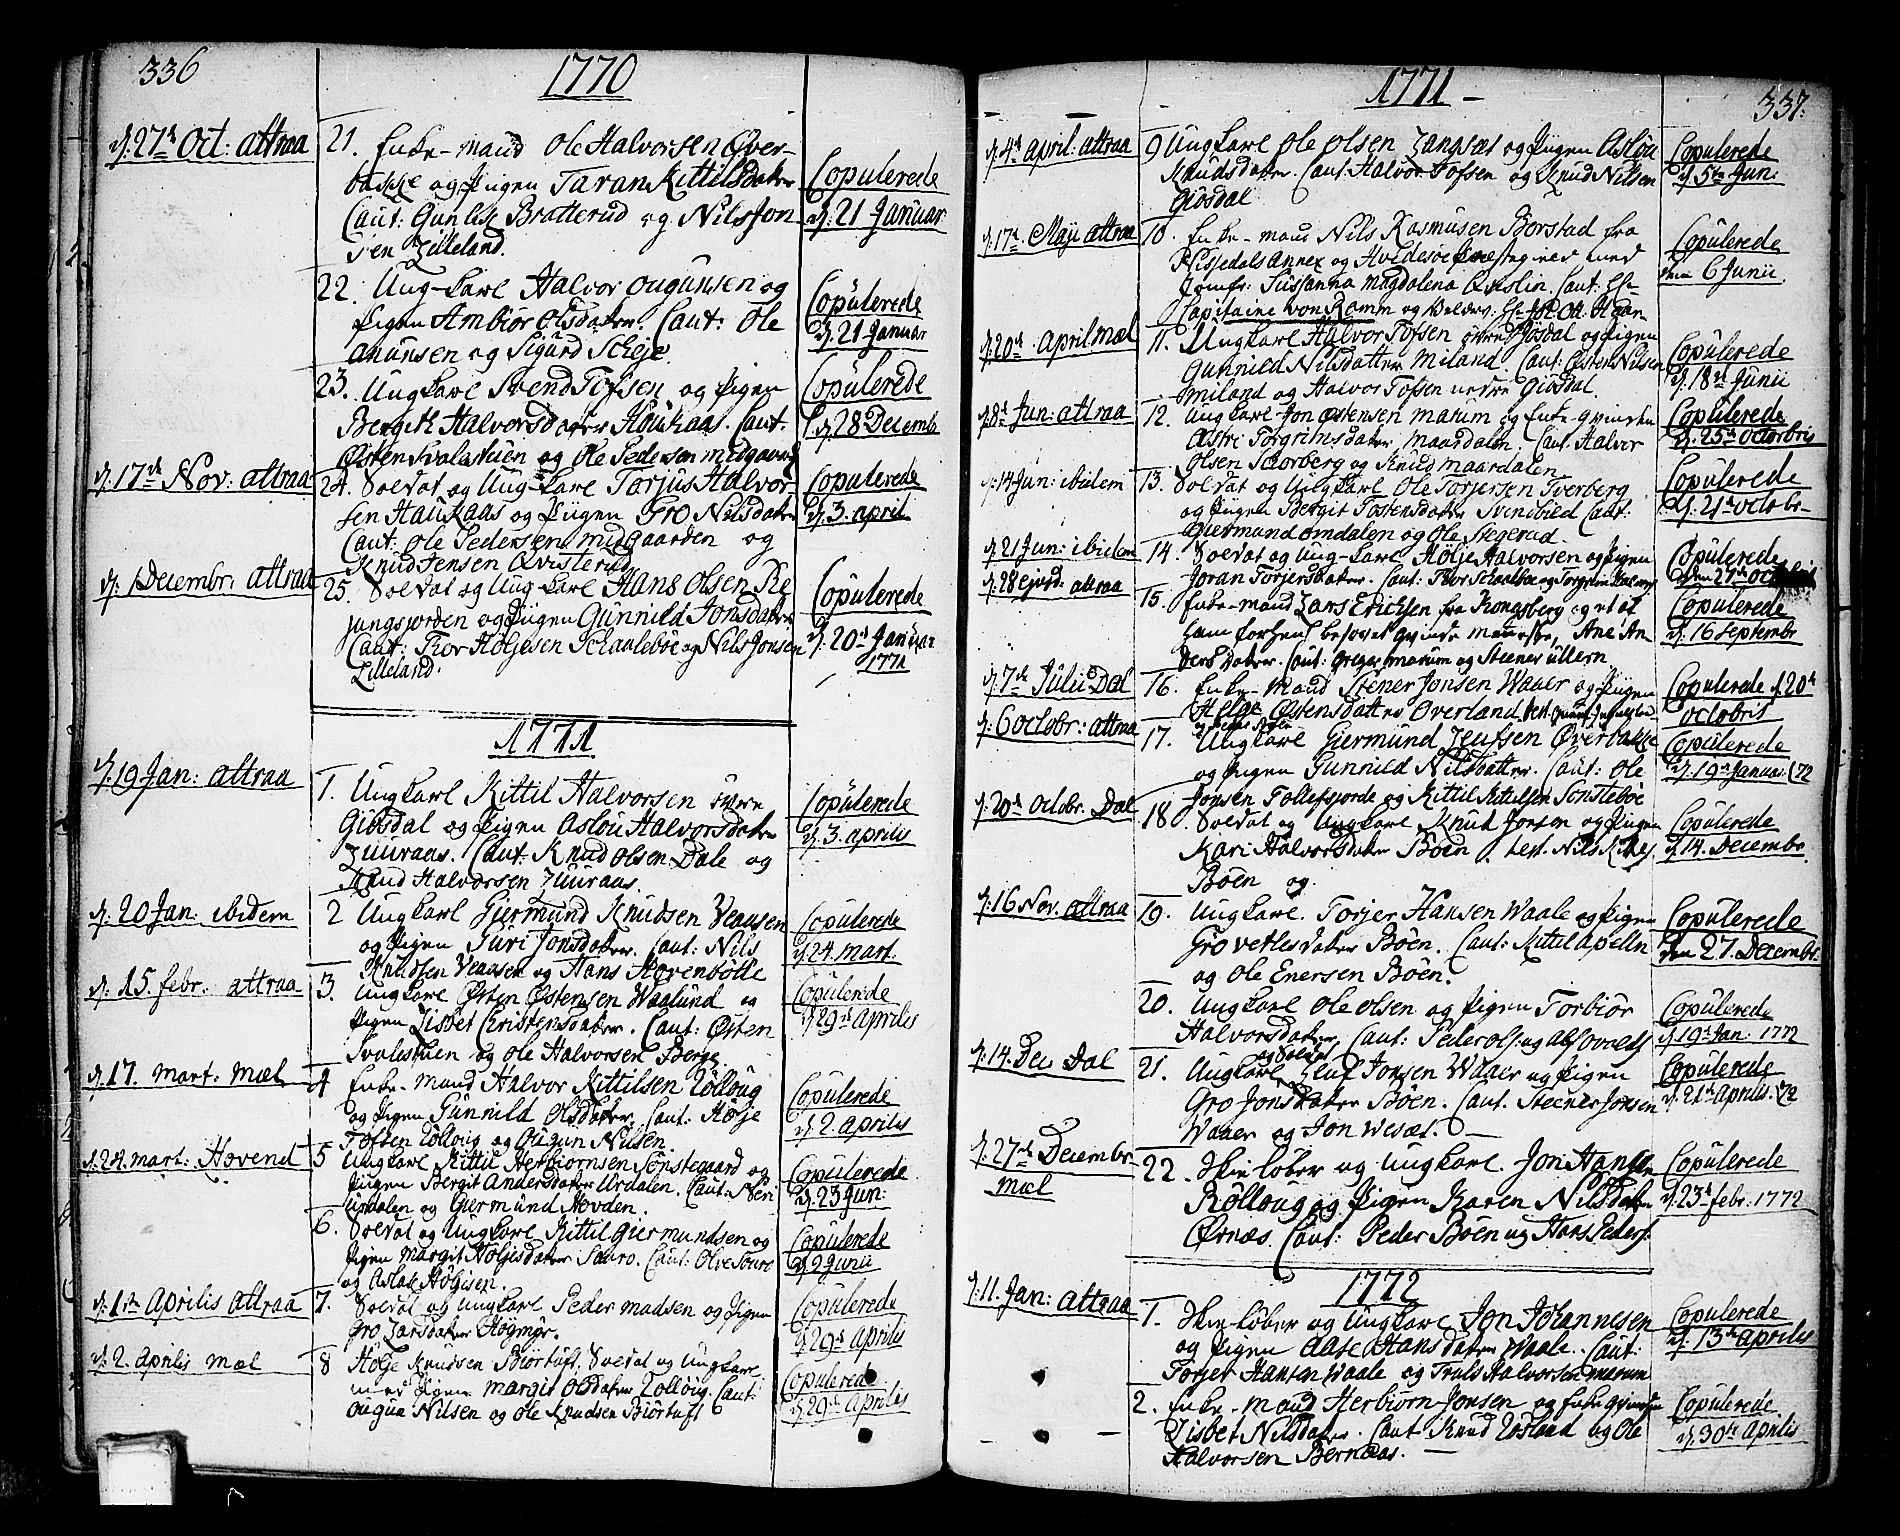 336
1770
d: 27de Oct: attraa
21. Enke-mand Ole Halvorsen Øver-
bakke og Pigen Taran Kittilsdatter
Caut: Gunlik Bratterud og Nils Jon
sen Lilleland.
Copulerede
d: 21 Januar
22. Ung-karl Halvor ougunsen og
Pigen Ambiør Olsdatter. Caut: Ole
anunsen og Sigurd Scheje.
Copulerede
d. 21 Januar
23. Ungkarl Svend Tofsen og Pigen
Bergith Halvorsdatter Houkaas. Caut.
Østen Svalastuen og Ole Pedersen midgaard
Copulerede
d. 28 Decemb
d. 17de Nov: attraa
24. Soldat og Ung-karl Torjus Halvor
sen Haukaas og Pigen Gro Nilsdatter
Caut: Ole Pedersen midgaarden og
Knud Jensen Qvisterud
Copulerede
d. 3. april
d. 1 Decembr: attraa
25. Soldat og Ung karl Hans Olsen Re
jungsjorden og Pigen Gunnild Jonsdatter
Caut: Thor Høljesen Schaaleböe og Nils Jonsen
Lilleland.
Copulerede
d. 20de Januar
1771
1771
d. 19 Jan: attraa
1. Ungkarl Kittil Halvorsen övre
Giösdal og Pigen Aslou Halvorsdatter
Luuraas. Caut: Knud Olsen Dale og
Knud Halvorsen Luuraas.
Copulerede
d. 3. aprilis
d. 20 Jan: ibidem
2 Ungkarl Giermund Knudsen Veausen
og Pigen Guri Jonsdatter. Caut: Nils
Knudsen Veausen og Hans Hovenbölle
Copulerede
d 24. mart.
d. 15. febr. attraa
3. Ungkarl Østen Østensen Waalund og
Pigen Lisbet Christensdatter. Caut: Østen
Svalestuen og Ole Halvorsen Berge
Copulerede
d 29de Aprilis
d. 17. mart: mæl
4 Enke-mand Halvor Kittilsen Rölloug
og Pigen Gunnild Olsdatter. Caut: Hölje
Tofsen Rölloug og Ougun Nilsen.
Copulerede
d 2. Aprilis
d. 24. mart: Hovend
5 Ungkarl Kittil Herbiornsen Sönstegaard og
Pigen Bergit Andersdatter Urdalen. Caut:
Urdalen og Giermund Hovden.
Copulerede
d. 23 Jun:
6. Soldat og Ungkarl Kittil Giermundsen og
Pigen margit Höljesdatter Sauro. Caut: Olve
og Aslak Högisen.
Copulerede
d. 2 Junii
d. 1ste Aprilis attraa
7. Soldat og Ungkarl Peder madsen og Pigen
Gro Larsdatter Høgmyr.
Copulerede
d 29de Aprilis
d. 2. Aprilis mæl
8 Hölje Knudsen Biörtuft. Soldat og Ungkarl
med Pigen margit Olsdatter Rolloug. Caut:
Ougun Nilsen og Ole Knudsen Biörtuft
Copulerede
d 29de Aprilis
337.
1771
d. 4de April: attraa
9 Ungkarl Ole Olsen Langsæt og Pigen Aslou
Knudsdatter. Caut: Halvor Tofsen og Knud Nilsen
Giösdal
Copulerede
d 5te Jun:
d. 17de Maji attraa
10. Enke-mand Nils Rasmusen Borstad fra
Nissedals Annex og Hvidesøe Præstegield med
Jomfr: Susanna Magdalena Qvislin. Caut: Hr
Capitaine von Ramm og
Copulerede
den 6 Junii
d. 20de April mæl
11. Ungkarl Halvor Tofsen övre Giösdal og Pigen
Gunnild Nilsdatter Miland. Caut: Østen Nilsen
miland og Halvor Tofsen nedre Giösdal
Copulerede
d. 18de Junii
d. 8de Jun: attraa
12. Ungkarl Jon Østensen marum og Enke-qvinden
Astri Torgrimsdatter maardalen Caut. Halvor
Olsen Skorberg og Knud maardalen
Copulerede
d. 25de Octobris
d. 14 Jun: ibidem
13. Soldat og Ungkarl Ole Torjersen Tverberg
og Pigen Bergit Tostensdatter Svineböed Caut:
Giermund omdalen og Ole Stegerud.
Copulerede
d. 21de octobr
d. 21 Jun: ibidem
14. Soldat og Ung-karl Hölje Halvorsen og Pigen
Joran Torjersdatter. Caut: Thor Schaaleböe og
Copulerede
den 27de oct
d. 28 ejusd: attraa
15. Enke-mand Lars Erichsen fra Kongsberg og et af
ham forhen besovet qvinde menneske, Ane An
ders datter. Caut: Greger marum og Steener ullern
Copulerede
d. 16 Septembr
d. 7de Julii Dal
16. Enke-mand Stener Jonsen Waaer og Pigen
Helge Østensdatter Overland
Copulerede d 20de
octobris
d. 6 octobr: attraa
17. Ungkarl Giermund Øverbakke
og Pigen Gunnild Nilsdatter. Caut: Ole
Jonsen Tollefsjorde og Kittil Kittilsen Sonsteböe
Copulerede
d. 19de Januar. 72
d. 20de octobr. Dal
18. Soldat og Ungkarl Knut Jonsen og Pigen
Kari Halvorsdatter Böen. test. Nils
Böen og
Copulerede
d 14. Decembr
d. 16 Nov. attraa
19. Ungkarl. Torjer Hansen Waale og Pigen
Gro Vetlesdatter Böen. Caut: Kittil Apelln
og Ole Enersen Böen.
Copulerede
den 27. Decembr.
20. Ungkarl Ole Olsen og Pigen Torbiör
Halvorsdatter. Caut: Peder Ols: og
Copulerede
d 19de Jan: 1772
d. 14. Dec Dal
og Soldat
21. Ungkarl Jonsen Waaer og Pigen
Gro Jonsdatter Böen. Caut. Steener Jonsen
Waaer og Jon Wesæt.
Copulerede
d. 21de Aprilis. 72
d. 27de Decembr
mæl
22. Skieløber og Ungkarl. Jon Hansen
Rölloug og Pigen Karen Nilsdatter
Ørnæs. Caut: Peder Böen og Hans Peders:
Copulerede
d. 23de febr. 1772
1772
d. 11. Jan: attraa
1. Skieløber og Ungkarl Jon Johannesen
og Pigen Aase Hansdatter Waale. Caut:
Torjer Hansen Waale og Truls Halvorsen marum
Copulerede
d. 13de aprilis
2. Enke-mand Herbiørn Jonsen og Enkeqvinden
Lisbet Nilsdatter. Caut Knud Rosland og Ole
Halvorsen Bernaas.
Copulerede
d. 30te Aprilis